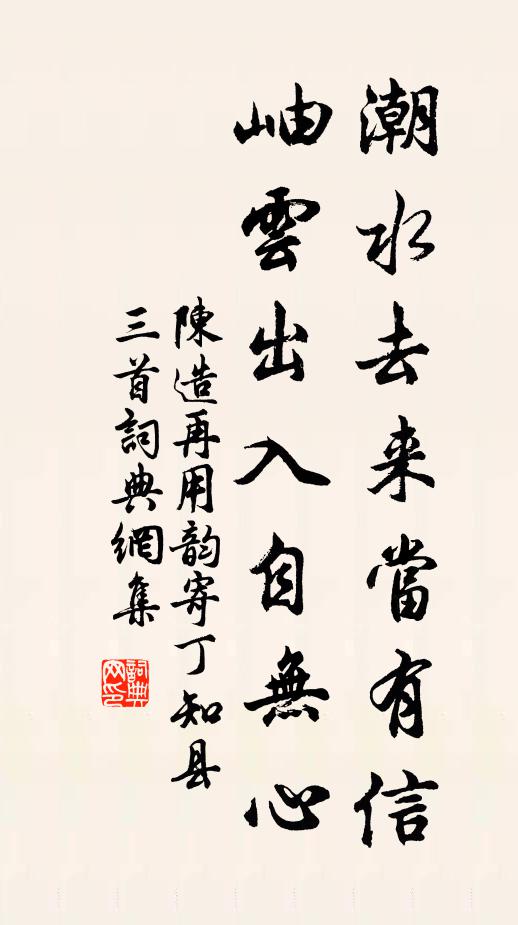 潮水去来當有信
岫雲出入自無心
陳造再用韵寄丁知县
三首詞典網集
詞典网印